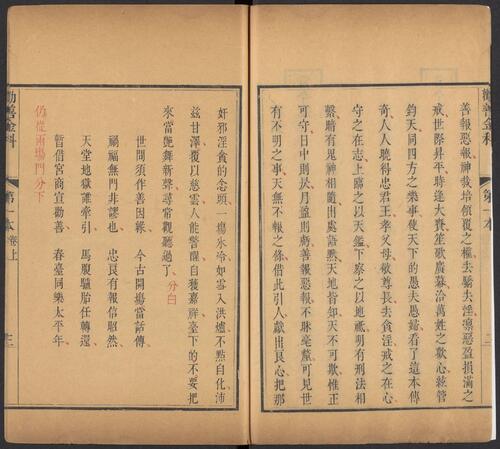 勸善金科
第一本
二
善報惡報神栽培傾覆之權去驕去淫凛惡盈損滿之
戒世際昇平時逢大賚笙歌廣幕洽萬姓之歡心絃管
鈞天同四方之樂事使天下的愚夫愚婦看了這本傳
奇人人曉得忠君王孝父母敬尊長去貪淫戒之在心
守之在志上臨之以天鑑下察之以地祗明有刑法相
繫暗有鬼神相隨出處語黙天地皆知天不可欺惟正
可守日中則昃月盈則虧善報惡報不昧毫釐可見世
有不明之事天無不報之條借此引人獻出良心把那
奸邪淫貪的念頭一塲氷冷如雪入洪爐不㸃自化沛
兹甘澤覆以慈雲人能警醒自獲嘉祥臺下的不要把
來當艶舞新聲尋常觀聽過了分白
世間須作善因縁 今古開塲當話傳
禍福無門非謬也 忠良有報信昭然
天堂地獄誰牽引 馬腹驢胎任轉還
暫借宮商宣勸善 春臺同樂太平年
仍從兩塲門分下
勸善金科
第一本卷上